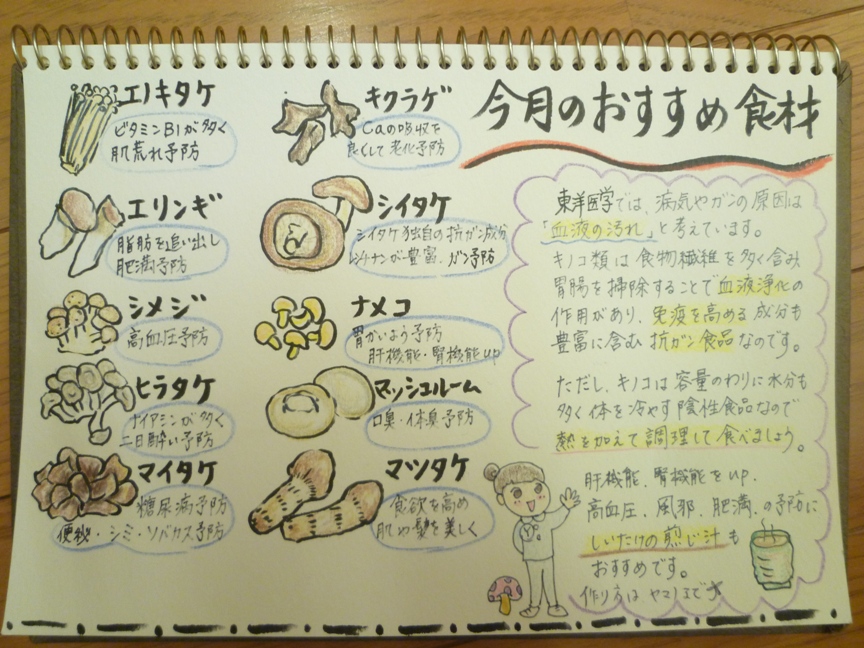 今月のおすすめ食材
エノキタケ
ビタミンB1が多く
肌荒れ予防
エリンギ
脂肪を追い出し
肥満予防
シメジ
高血圧予防
ヒラタケ
ナイアシンが多く
二日酔い予防
マイタケ
糖尿病予防
便秘・シミ・ソバカス予防
キクラゲ
Caの吸収を
良くして老化予防
シイタケ
シイタケ独自の抗ガン成分
レンチナンが豊富。ガン予防
ナメコ
胃かいよう予防
肝機能・腎機能up
マッシュルーム
口臭・体臭予防
マツタケ
食欲を高め
肌や髪を美しく
東洋医学では、病気やガンの原因は
「血液の汚れ」と考えています。
キノコ類は食物繊維を多く含み
胃腸を掃除することで血液浄化の
作用があり、免疫を高める成分も
豊富に含む抗ガン食品なのです。
ただし、キノコは容量のわりに水分も
多く体を冷やす陰性食品なので
熱を加えて調理して食べましょう。
肝機能、腎機能をup、
高血圧、風邪、肥満、の予防に
しいたけの煎じ汁も
おすすめです。
作り方は